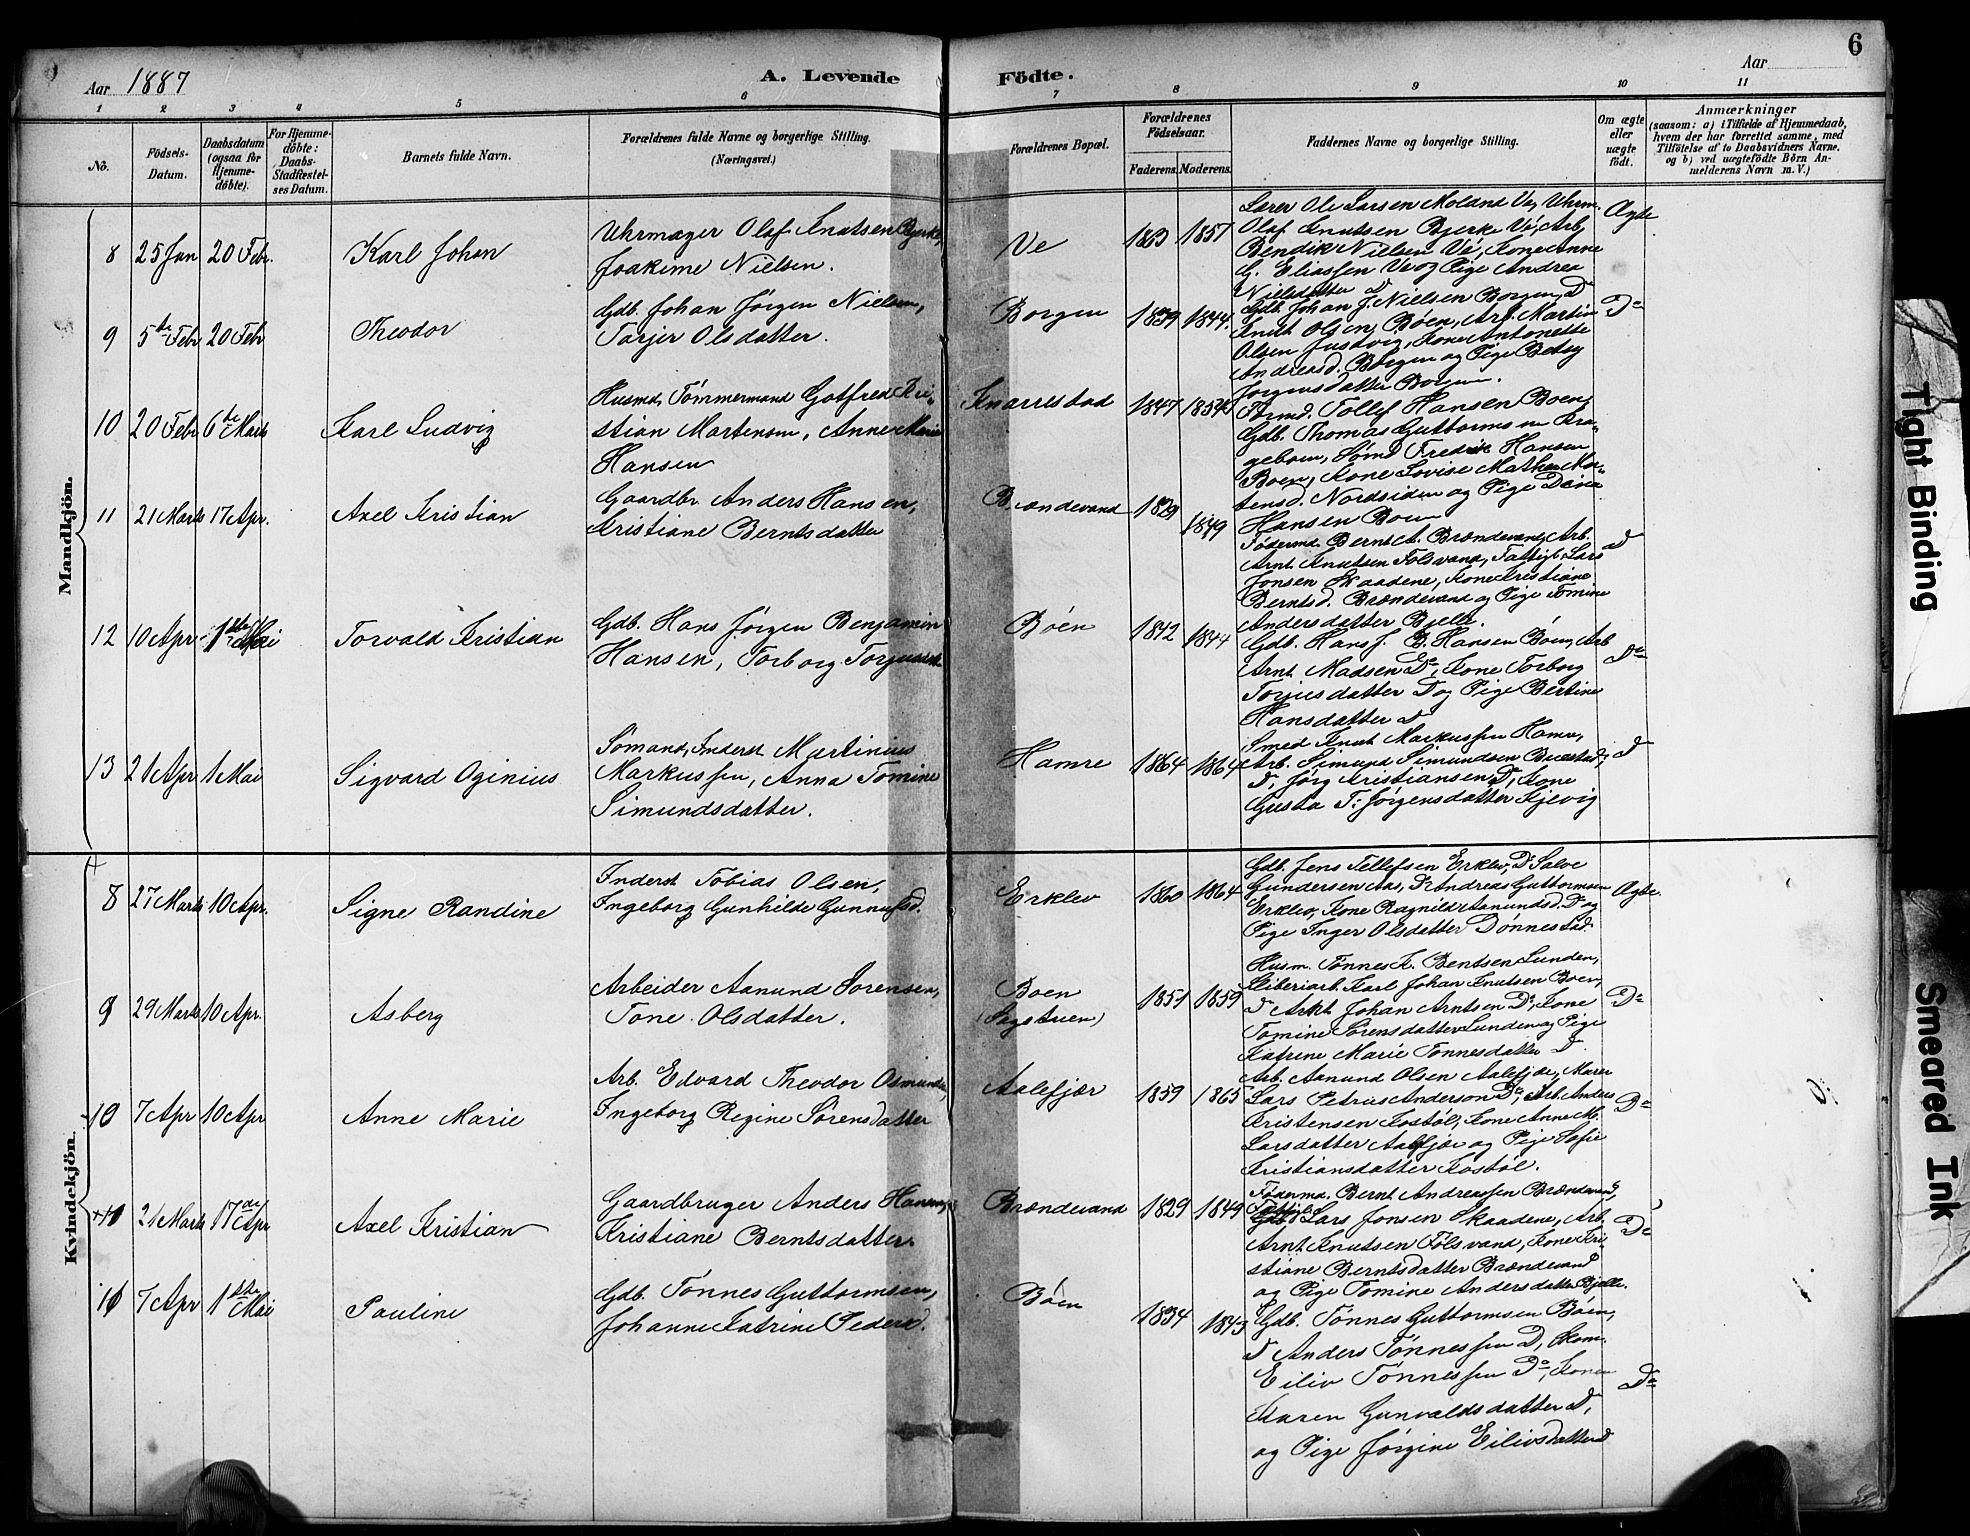 6
Aar 1887
A. Levende Födte.
Aar
1 2 3 4 5 6 7 8 9 10 11
No.
Födsels-
Datum.
Daabsdatum
(ogsaa for
Hjemme-
döbte).
For Hjemme-
döbte:
Daabs-
Stadfæstel-
ses Datum.
Barnets fulde Navn.
Forældrenes fulde Navne og borgerlige Stilling.
(Næringsvei.)
Forældrenes Bopæl.
Forældrenes
Födselsaar.
Faderens. Moderens.
Faddernes Navne og borgerlige Stilling.
Om ægte
eller
uægte
födt.
Anmærkninger
(saasom: a) i Tilfælde af Hjemmedaab,
hvem der har forrettet samme, med
Tilföielse af to Daabsvidners Navne.
og b) ved uægtefödte Börn An-
melderens Navn m. V.)
Mandkjön.
8 25 Jan 20 Febr. Karl Johan
Uhrmager Olaf Knutsen Bjerke,
Joakime Nielsen.
Ve 1863 1857
Lærer Ole Larsen Moland Ve, Uhrm.
Olaf Knutsen Bjerke Vé, Arb.
Bendik Nielsen Vé, Kone Anne
G. Eliassen Ve og Pige Andrea
Nielsdatter D
Ægte
9 5te Febr 20 Febr Theodor
Gdb. Johan Jörgen Nielsen,
Tarjer Olsdatter.
Borgen 1859 1844.
Gdb. Johan J. Nielsen Borgen, Do
Knut Olsen Bøen, Arb. Martin
Olsen Justvig, Kone Antonette
Andreasd. Borgen og Pige Betsy
Jørgensdatter Borgen.
Do
10 20 Febr 6te Marts Karl Ludvig
Husmd. Tömmermand Gotfred Kri-
stian Martensen, Anne Marie
Hansen
Knarrestad 1847 1854
Formd. Tollef Hansen Boen,
Gdb. Thomas Guttormsen Kra-
geboen, Sømd Fredrik Hansen
Boen, Kone Lovise Mathea Mor-
tensd. Nordsiden og Pige Dina
Hansen Boen
11 21 Marts 17 Apr. Axel Kristian
Gaardbr. Anders Hansen,
Kristiane Berntsdatter
Brændevand 1829 1849
Fødermd. Bernt A. Brændevand, Arb.
Arnt Knutsen Fölsvand, Fattigl. Lars
Jonsen Skaadene, Kone Kristiane
Berntsd. Brændevand og Pige Tomine
Andersdatter Bjelle.
D
12 10 Apr. 1ste Mai Torvald Kristian
Gdb. Hans Jörgen Benjamin
Hansen, Torborg Torjusdtr
Bøen 1842 1844
Gdb. Hans J. B. Hansen Bøen, Arb
Arnt Madsen Do, Kone Torborg
Torjusdatter D og Pige Bertine
Hansdatter D
Do
13 21 Apr 1 Mai Sigvard Oginius
Sömand, Inderst Martinius
Markussen, Anna Tomine
Simundsdatter.
Hamre 1864 1864
Smed Knut Markussen Hamre,
Arb. Simund Simundsen
D, Jörg Kristiansen Do, Kone
Gusta T. Jørgensdatter Kjevig
D
Kvindekjön.
8 27 Marts 10 Apr. Signe Randine
Inderst Tobias Olsen,
Ingeborg Gunhilde Gunnufsd.
Erklev 1860 1864
Gdb. Jens Tellefsen Erklev, Do Salve
Gundersen Aas, Do Andreas Guttormsen
Erklev, Kone Ragnild Aanundsd. Do og
Pige Inger Olsdatter Dønnestad.
Ægte.
9 29 Marts 10 Apr. Asberg
Arbeider Aanund Sörensen,
Tone Olsdatter.
Boen
(Sagstuen)
1851 1859
Husm. Tönnes K. Bentsen Lunden,
Sliberiarb. Karl Johan Knutsen Boen,
D Arb. Johan Arntsen Do, Kone
Tomine Sörensdatter Lunden og Pige
Katrine Marie Tönnesdatter D.
Do
10 7 Apr 10 Apr Anne Marie
Arb. Edvard Theodor Osmunds,
Ingeborg Regine Sörensdatter
Aalefjær 1859 1865
Arb. Aanund Olsen Aalefjær, Murer
Lars Petrus Anderson Do, Arb. Anders
Kristensen Kostöl, Kone Anne M.
Larsdatter Aalefjær og Pige Sofie
Kristiansdatter Kostöl.
Do
11 21 Marts 17de Apr Axel Kristian
Gaardbruger Anders Hansen,
Kristiane Berntsdatter.
Brændevand 1829 1849
Föderma. Bernt Andreassen Brændevand,
Lars Jonsen Skaadene, Arb.
Arnt Knutsen Fölsvand, Kone Kri-
stiane Berntsdatter Brændevand
og Pige Tomine Andersdatter Bjelle.
Do
11 7 Apr 1ste Mai Pauline
Gdb. Tönnes Guttormsen,
Johanne Katrine Pedersd.
Bøen 1834 1843
Gdb. Tönnes Guttormsen Bøen,
D Anders Tönnessen D, Skom.
Eiliv Tönnessen Do, Konen
Karen Gunvaldsdatter D,
og Pige Jörgine Eilivsdatter D
Do
Tight Binding
Smeared Ink